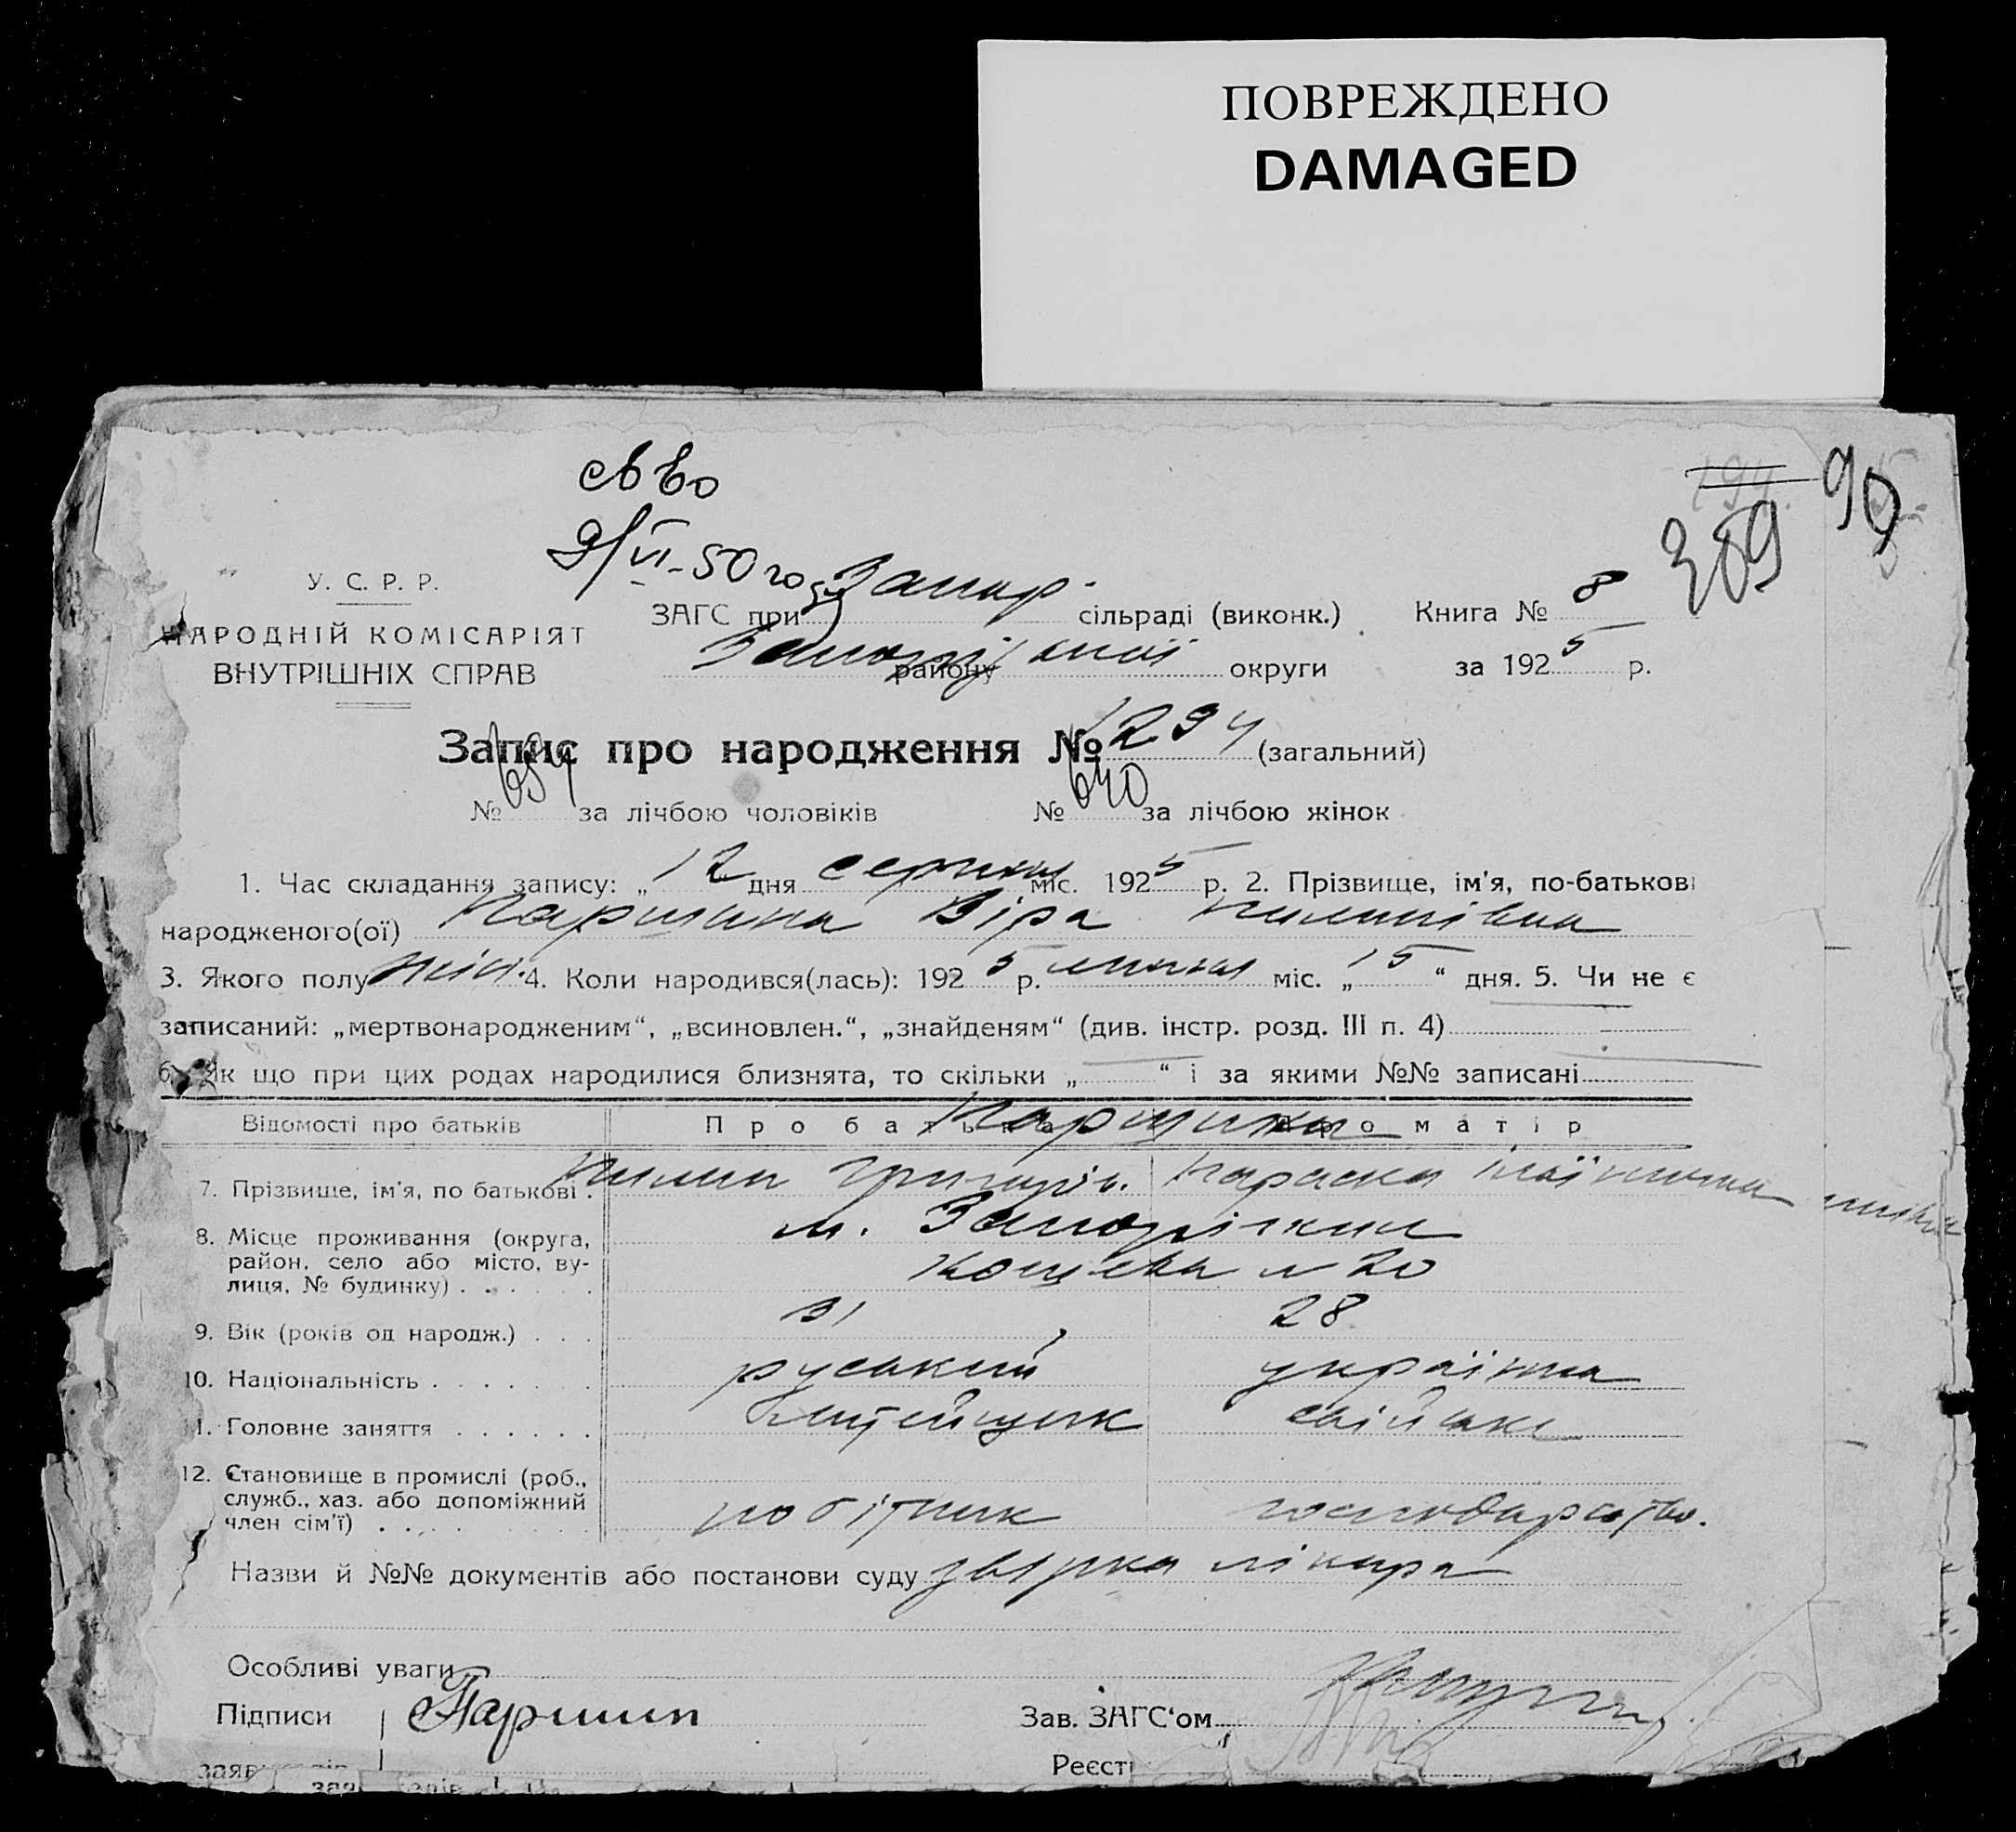 ПОВРЕЖДЕНО
DAMAGED
9/VI-50 го
90
389
У. С. Р. Р.
НАРОДНІЙ КОМІСАРІЯТ
ВНУТРІШНІХ СПРАВ
ЗАГС при Запор. сільраді (виконк.) Книга № 8
району округи за 1925 р.
Запис про народження № 1294 (загальний)
№ 654 за лічбою чоловіків № 640 за лічбою жінок
1. Час складання запису: „12“ дня серпня міс. 1925 р. 2. Прізвище, ім'я, по-батькові
народженого(ої) Паршина Віра Пилипівна
3. Якого полу жін. 4. Коли народився(лась): 1925 р. липня міс. „15“ дня. 5. Чи не є
записаний: „мертвонародженим“, „всиновлен.“, „знайденям“ (див. інстр. розд. III п. 4)
6. Як що при цих родах народилися близнята, то скільки „ “ і за якими №№ записані
Відомості про батьків Про батька Про матір
Паршини
7. Прізвище, ім'я, по батькові . Пилип Григорів. Параска
8. Місце проживання (округа, район, село або місто, вулиця, № будинку) . . . . . . м. Запоріжжя
№ 20
9. Вік (років од народж.) . . . 31 28
10. Національність . . . . . . руський українка
11. Головне заняття . . . . . . хатнє
12. Становище в промислі (роб., служб., хаз. або допоміжний член сім'ї) . . . робітник господарство.
Назви й №№ документів або постанови суду лікаря
Особливі уваги
Підписи Паршин Зав. ЗАГС'ом
Реєст